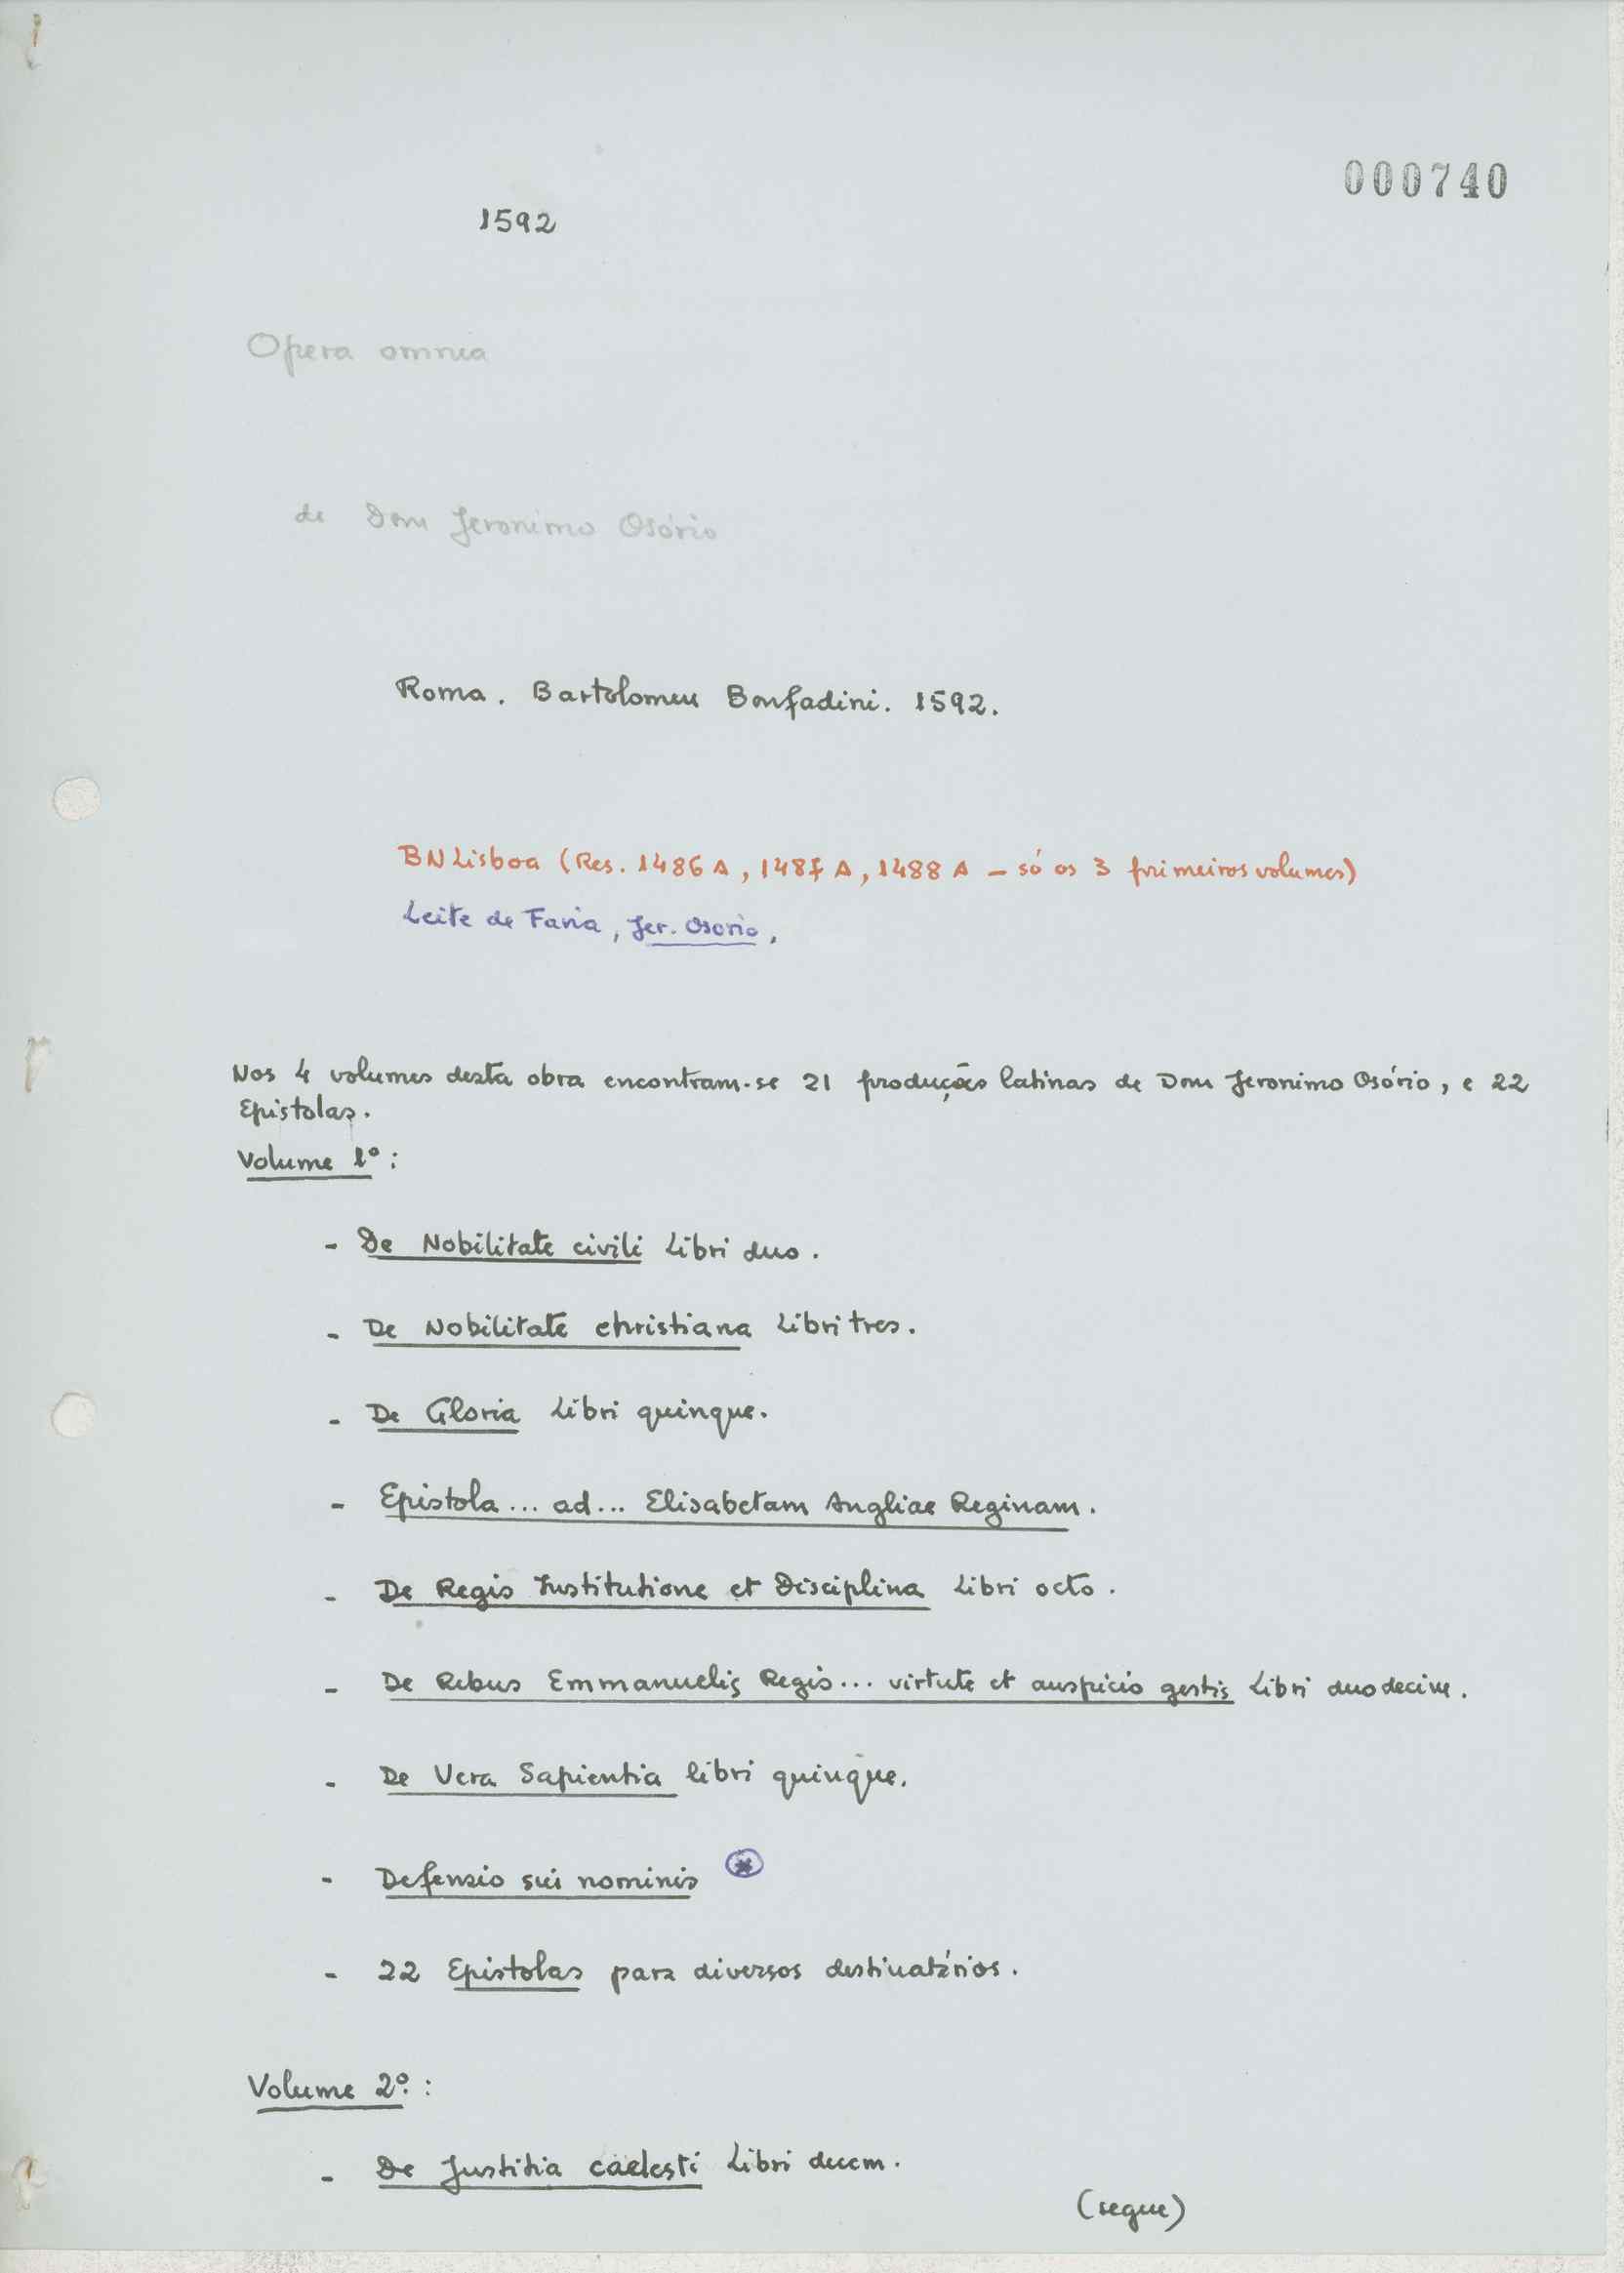 000740
1592
Opera omnia
de Dom Jeronimo Osório
Roma. Bartolomeu Bonfadini. 1592.
BN Lisboa (Res. 1486 A, 1487 A, 1488 A – só os 3 primeiros volumes)
Leite de Faria, Jer. Osorio,
Nos 4 volumes desta obra encontram-se 21 produções latinas de Dom Jeronimo Osório, e 22
Epistolas.
Volume 1º:
- De Nobilitate civili Libri duo.
- De Nobilitate christiana Libri tres.
- De Gloria Libri quinque.
- Epistola ... ad ... Elisabetam Angliae Reginam.
- De Regis Institutione et Disciplina Libri octo.
- De Rebus Emmanuelis Regis ... virtute et auspicio gestis Libri duodecim.
- De Vera Sapientia libri quinque.
- Defensio sui nominis *
- 22 Epistolas para diversos destinatários.
Volume 2º:
- De Justitia caelesti Libri decem.
(segue)